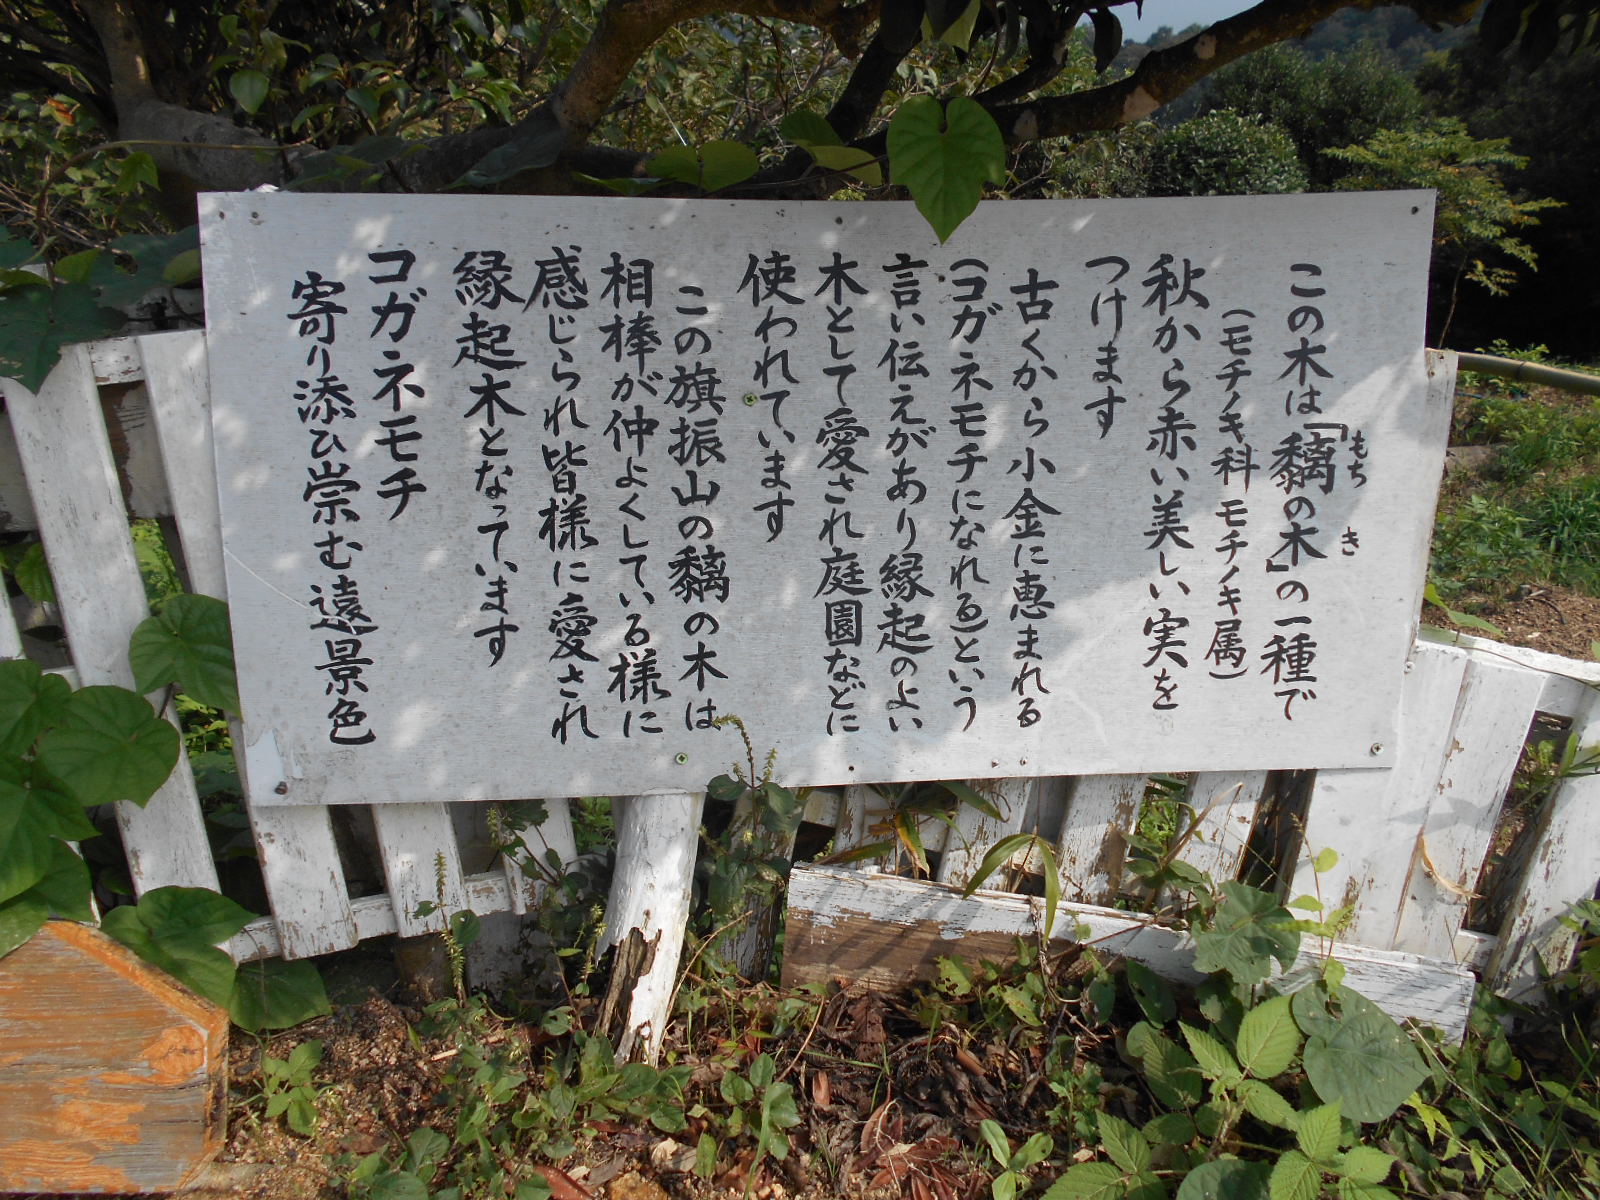 この木は「黐の木」の一種で
もち き
(モチノキ科モチノキ属)
秋から赤い美しい実を
つけます
古くから小金に恵まれる
(コガネモチになれる)という
言い伝えがあり縁起のよい
木として愛され庭園などに
使われています
この旗振山の黐の木は
相棒が仲よくしている様に
感じられ皆様に愛され
縁起木となっています
コガネモチ
寄り添ひ崇む遠景色